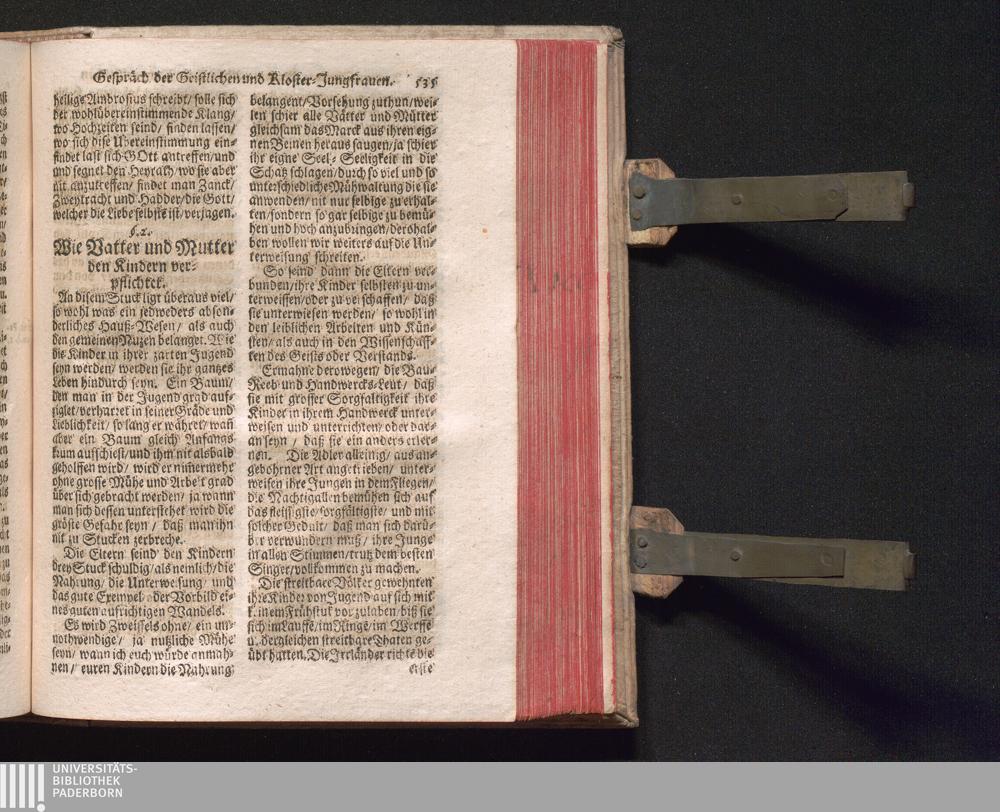 Gespräch der Geistlichen und Kloster-Jungfrauen. 535
heilige Ambrosius schreibt/ solle sich
der wohlübereinstimmende Klang/
wo Hochzeiten seind/ finden lassen/
wo sich dise Ubereinstimmung ein-
findet last sich GOtt antreffen/und
und segnet den Heyrath/ wo sie aber
nit anzutreffen/ findet man Zanck/
Zweytracht und Hadder/die Gott/
welcher die Liebe selbsts ist/verjagen.
§. 2.
Wie Vatter und Mutter
den Kindern ver-
pflichtet.
An disem Stuck ligt überaus viel/
so wohl was ein jedweders abson-
derliches Hauß-Wesen/ als auch
den gemeinen Nuzen belanget. Wie
die Kinder in ihrer zarten Jugend
seyn werden/ werden sie ihr gantzes
Leben hindurch seyn. Ein Baum/
den man in der Jugend grad auf-
ziglet/verharret in seiner Gräde und
Lieblichkeit/ so lang er währet/ wañ
aber ein Baum gleich Anfangs
krum aufschiest/und ihm nit alsbald
geholffen wird/ wird er nim̃ermehr
ohne grosse Mühe und Arbeit grad
über sich gebracht werden/ ja wann
man sich dessen unterstehet wird die
gröste Gefahr seyn/ daß man ihn
nit zu Stucken zerbreche.
Die Eltern seind den Kindern
drey Stuck schuldig/als nemlich/die
Nahrung/ die Unterweisung/ und
das gute Exempel oder Vorbild ei-
nes guten aufrichtigen Wandels.
Es wird Zweiffels ohne/ ein un-
nothwendige/ ja nutzliche Mühe
seyn/ wann ich euch würde anmah-
nen/ euren Kindern die Nahrung
belangent/Vorsehung zuthun/wei-
len schier alle Vätter und Mütter
gleichsam das Marck aus ihren eig-
nen Beinen heraus saugen/ja schier
ihr eigne Seel- Seeligkeit in die
Schatz schlagen/durch so viel und so
unterschiedliche Mühwaltung die sie
anwenden/ nit nur selbige zu erhal-
ten/sondern so gar selbige zu bemü-
hen und hoch anzubringen/derohal-
ben wollen wir weiters auf die Un-
terweisung schreiten.
So seind dann die Eltern ver-
bunden/ihre Kinder selbsten zu un-
terweissen/oder zu verschaffen/ daß
sie unterwiesen werden/ so wohl in
den leiblichen Arbeiten und Kün-
sten/als auch in den Wissenschaff-
ten des Geists oder Verstands.
Ermahne derowegen/ die Bau-
Reeb und Handwercks-Leut/ daß
sie mit grosser Sorgfaltigkeit ihre
Kinder in ihrem Handwerck unter-
weisen und unterrichten/ oder dar-
an seyn/ daß sie ein anders erler-
nen. Die Adler alleinig/ aus an-
gebohrner Art angetrieben/ unter-
weisen ihre Jungen in dem Fliegen/
die Nachtigallen bemühen sich auf
das fleissigste/sorgfältigste/ und mit
solcher Gedult/ daß man sich darü-
ber verwundern muß/ ihre Junge
in allen Stimmen/trutz dem besten
Singer/vollkommen zu machen.
Die streitbare Völker gewehnten
ihre Kinder von Jugend auf sich mit
k inem Frühstuk vor zulaben/biß sie
sich im Lauffe/im Ringe/im Werffe
u. dergleichen streitbare Thaten ge-
übt hatten. Die Irrländer richte die
erste
UNIVERSITÄTS-
BIBLIOTHEK
PADERBORN